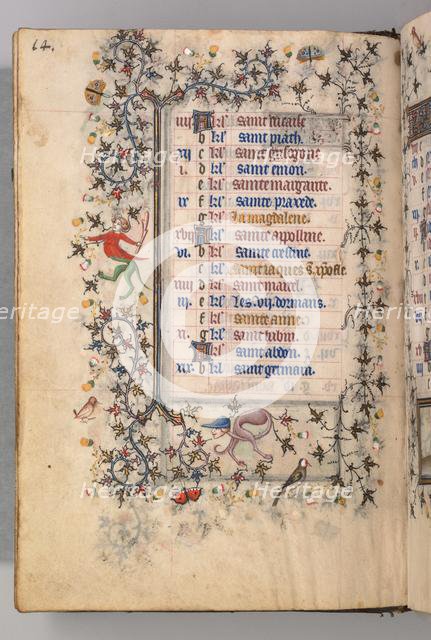 14.
iiij A kl' saint
b kl' saint piath.
xij c kl' saint
i. d kl' saint enion.
e kl' sainte margarite.
ix f kl' sainte praxede.
g kl' la magdalene.
xvij A kl' sainte apolline.
vi. b kl' sainte cristine.
c kl' saint iaques
iiij d kl' saint marcel.
iij. e kl' Les .vij. dormans.
f kl' sainte anne.
xi. g kl' saint
A kl' saint abdon.
xix. b kl' saint germain.
Heritage
Heritage
Heritage
Heritage
Heritage
Heritage
Heritage